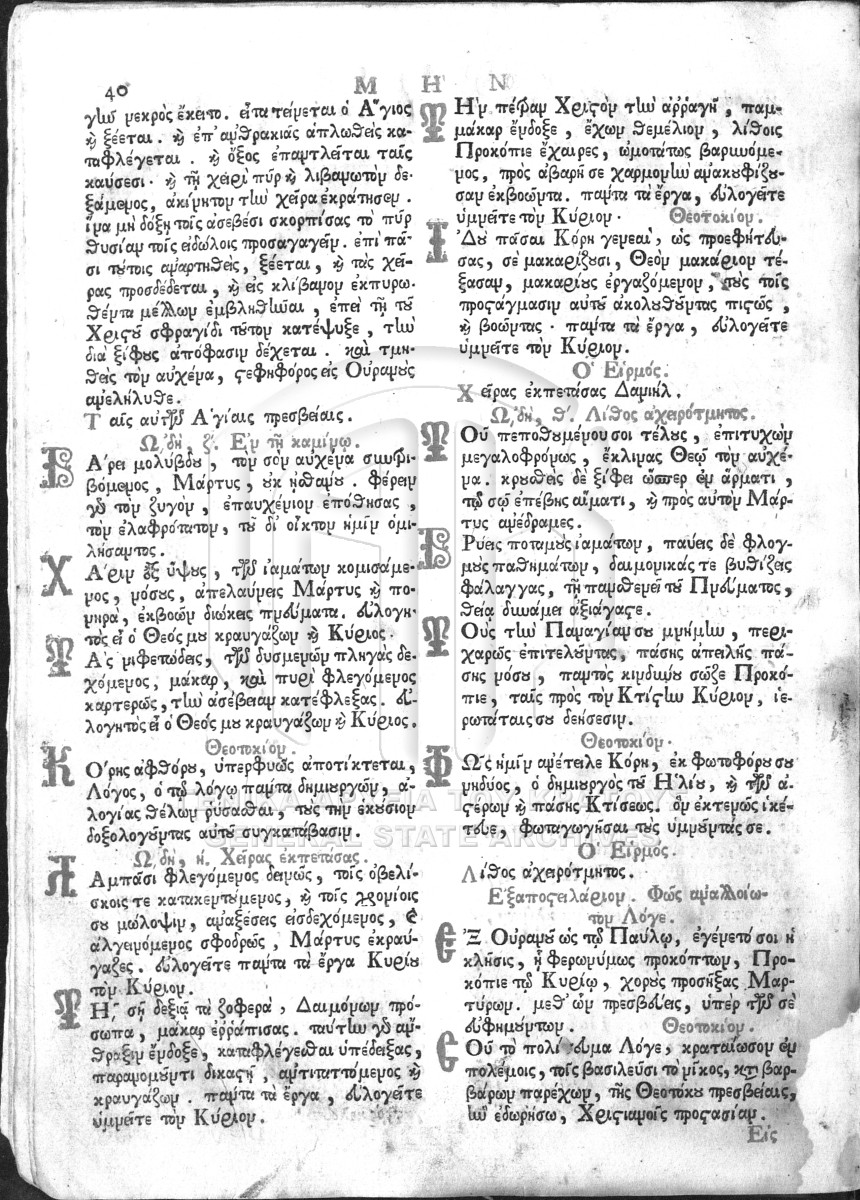 40
Μ Η Ν
γῆν νεκρὸς ἔκειτο. εἶτα τείνεται ὁ Ἅγιος
καὶ ξέεται. καὶ ἐπ' ἀνθρακιᾶς ἁπλωθεὶς κα-
ταφλέγεται. καὶ ὄξος ἐπαντλεῖται ταῖς
καύσεσι. καὶ τῇ χειρὶ πῦρ καὶ λιβανωτὸν δε-
ξάμενος, ἀκίνητον τὴν χεῖρα ἐκράτησεν.
ἵνα μὴ δόξῃ τοῖς ἀσεβέσι σκορπίσας τὸ πῦρ
θυσίαν τοῖς εἰδώλοις προσαγαγεῖν. ἐπὶ πᾶ-
σι τούτοις ἀναρτηθεὶς, ξέεται, καὶ τὰς χεῖ-
ρας προσδέδεται, καὶ εἰς κλίβανον ἐκπυρω-
θέντα μέλλων ἐμβληθῆναι, ἐπεὶ τῇ τοῦ
Χριστοῦ σφραγίδι τοῦτον κατέψυξε, τὴν
διὰ ξίφους ἀπόφασιν δέχεται. καὶ τμη-
θεὶς τὸν αὐχένα, στεφηφόρος εἰς Οὐρανοὺς
ἀνελήλυθε.
Ταῖς αὐτῶν Ἁγίαις πρεσβείαις.
ᾨδὴ, ζ. Ἐν τῇ καμίνῳ.
Βάρει μολύβδου, τὸν σὸν αὐχένα συντρι-
βόμενος, Μάρτυς, οὐκ ᾐσθάνου. φέρειν
γὰρ τὸν ζυγὸν, ἐπαυχένιον ἐπόθησας,
τὸν ἐλαφρότατον, τοῦ δι' οἶκτον ἡμῖν ὁμι-
λήσαντος.
Χάριν ἐξ ὕψους, τῶν ἰαμάτων κομισάμε-
νος, νόσους, ἀπελαύνεις Μάρτυς καὶ πο-
νηρὰ, ἐκβοῶν διώκεις πνεύματα. εὐλογη-
τὸς εἶ ὁ Θεός μου κραυγάζων καὶ Κύριος.
Τὰς νιφετώδεις, τῶν δυσμενῶν πληγὰς δε-
χόμενος, μάκαρ, καὶ πυρὶ φλεγόμενος
καρτερῶς, τὴν ἀσέβειαν κατέφλεξας. εὐ-
λογητὸς εἶ ὁ Θεός μου κραυγάζων καὶ Κύριος.
Θεοτοκίον.
Κόρης ἀφθόρου, ὑπερφυῶς ἀποτίκτεται,
Λόγος, ὁ τῷ λόγῳ πάντα δημιουργῶν, ἀ-
λογίας θέλων ῥύσασθαι, τοὺς τὴν ἑκούσιον
δοξολογοῦντας αὐτοῦ συγκατάβασιν.
ᾨδὴ, η. Χεῖρας ἐκπετάσας.
Λαμπάσι φλεγόμενος δεινῶς, τοῖς ὀβελί-
σκοις τε κατακεντούμενος, καὶ τοῖς χρονίοις
σου μώλωψιν, ἀναξέσεις εἰσδεχόμενος, καὶ
ἀλγεινόμενος σφοδρῶς, Μάρτυς ἐκραύ-
γαζες. εὐλογεῖτε πάντα τὰ ἔργα Κυρίου
τὸν Κύριον.
Τῇ, σῇ δεξιᾷ τὰ ζοφερὰ, Δαιμόνων πρό-
σωπα, μάκαρ ἐῤῥάπισας. ταύτην γὰρ ἄν-
θραξιν ἔνδοξε, καταφλέγεσθαι ὑπέδειξας,
παρανομοῦντι δικαστῇ, ἀντιταττόμενος καὶ
κραυγάζων. πάντα τὰ ἔργα, εὐλογεῖτε
ὑμνεῖτε τὸν Κύριον.
Τὴν πέτραν Χριστὸν τὴν ἀῤῥαγῆ, παμ-
μάκαρ ἔνδοξε, ἔχων θεμέλιον, λίθοις
Προκόπιε ἔχαιρες, ὠμοτάτως βαρυνόμε-
νος, πρὸς ἀβαρῆ σε χαρμονὴν ἀνακουφίζου-
σαν ἐκβοῶντα. πάντα τὰ ἔργα, εὐλογεῖτε
ὑμνεῖτε τὸν Κύριον. Θεοτοκίον.
Ἰδοὺ πᾶσαι Κόρη γενεαὶ, ὡς προεφήτευ-
σας, σὲ μακαρίζουσι, Θεὸν μακάριον τέ-
ξασαν, μακαρίους ἐργαζόμενον, τοὺς τοῖς
προστάγμασιν αὐτοῦ ἀκολουθοῦντας πιστῶς,
καὶ βοῶντας. πάντα τὰ ἔργα, εὐλογεῖτε
ὑμνεῖτε τὸν Κύριον.
Ὁ Εἱρμός.
Χεῖρας ἐκπετάσας Δανιήλ.
ᾨδὴ, θ. Λίθος ἀχειρότμητος.
Τοῦ πεποθουμένου σοι τέλους, ἐπιτυχὼν
μεγαλοφρόνως, ἔκλινας Θεῷ τὸν αὐχέ-
να. κρουθεὶς δὲ ξίφει ὥσπερ ἐν ἅρματι,
τῷ σῷ ἐπέβης αἵματι, καὶ πρὸς αὐτὸν Μάρ-
τυς ἀνέδραμες.
Βρύεις ποταμοὺς ἰαμάτων, παύεις δὲ φλογ-
μοὺς παθημάτων, δαιμονικάς τε βυθίζεις
φάλαγγας, τῇ πανσθενεῖ τοῦ Πνεύματος,
θείᾳ δυνάμει ἀξιάγαστε.
Τοὺς τὴν Παναγίαν σου μνήμην, περι-
χαρῶς ἐπιτελοῦντας, πάσης ἀπειλῆς πά-
σης νόσου, παντὸς κινδύνου σῶζε Προκό-
πιε, ταῖς πρὸς τὸν Κτίστην Κύριον, ἱε-
ρωτάταις σου δεήσεσιν.
Θεοτοκίον.
Φῶς ἡμῖν ἀνέτειλε Κόρη, ἐκ φωτοφόρου σου
νηδύος, ὁ δημιουργὸς τοῦ Ἡλίου, καὶ τῶν ἀ-
στέρων καὶ πάσης Κτίσεως. ὃν ἐκτενῶς ἱκέ-
τευε, φωταγωγῆσαι τοὺς ὑμνοῦντάς σε.
Ὁ Εἱρμός.
Λίθος ἀχειρότμητος.
Ἐξαποστειλάριον. Φῶς ἀναλλοίω-
τον Λόγε.
Ἐξ Οὐρανοῦ ὡς τῷ Παύλῳ, ἐγένετό σοι ἡ
κλῆσις, ἧ φερωνύμως προκόπτων, Προ-
κόπιε τῷ Κυρίῳ, χοροὺς προσῆξας Μαρ-
τύρων. μεθ' ὧν πρεσβεύεις, ὑπὲρ τῶν σὲ
εὐφημούντων. Θεοτοκίον.
Σοῦ τὸ πολίτευμα Λόγε, κραταίωσον ἐν
πολέμοις, τοῖς βασιλεῦσι τὸ νῖκος, κατὰ βαρ-
βάρων παρέχων, τῆς Θεοτόκου πρεσβείαις,
ἣν ἐδωρήσω, Χριστιανοῖς προστασίαν.
Εἰς
ΓΕΝΙΚΑ ΑΡΧΕΙΑ ΤΟΥ ΚΡΑΤΟΥΣ
GENERAL STATE ARCHIVES